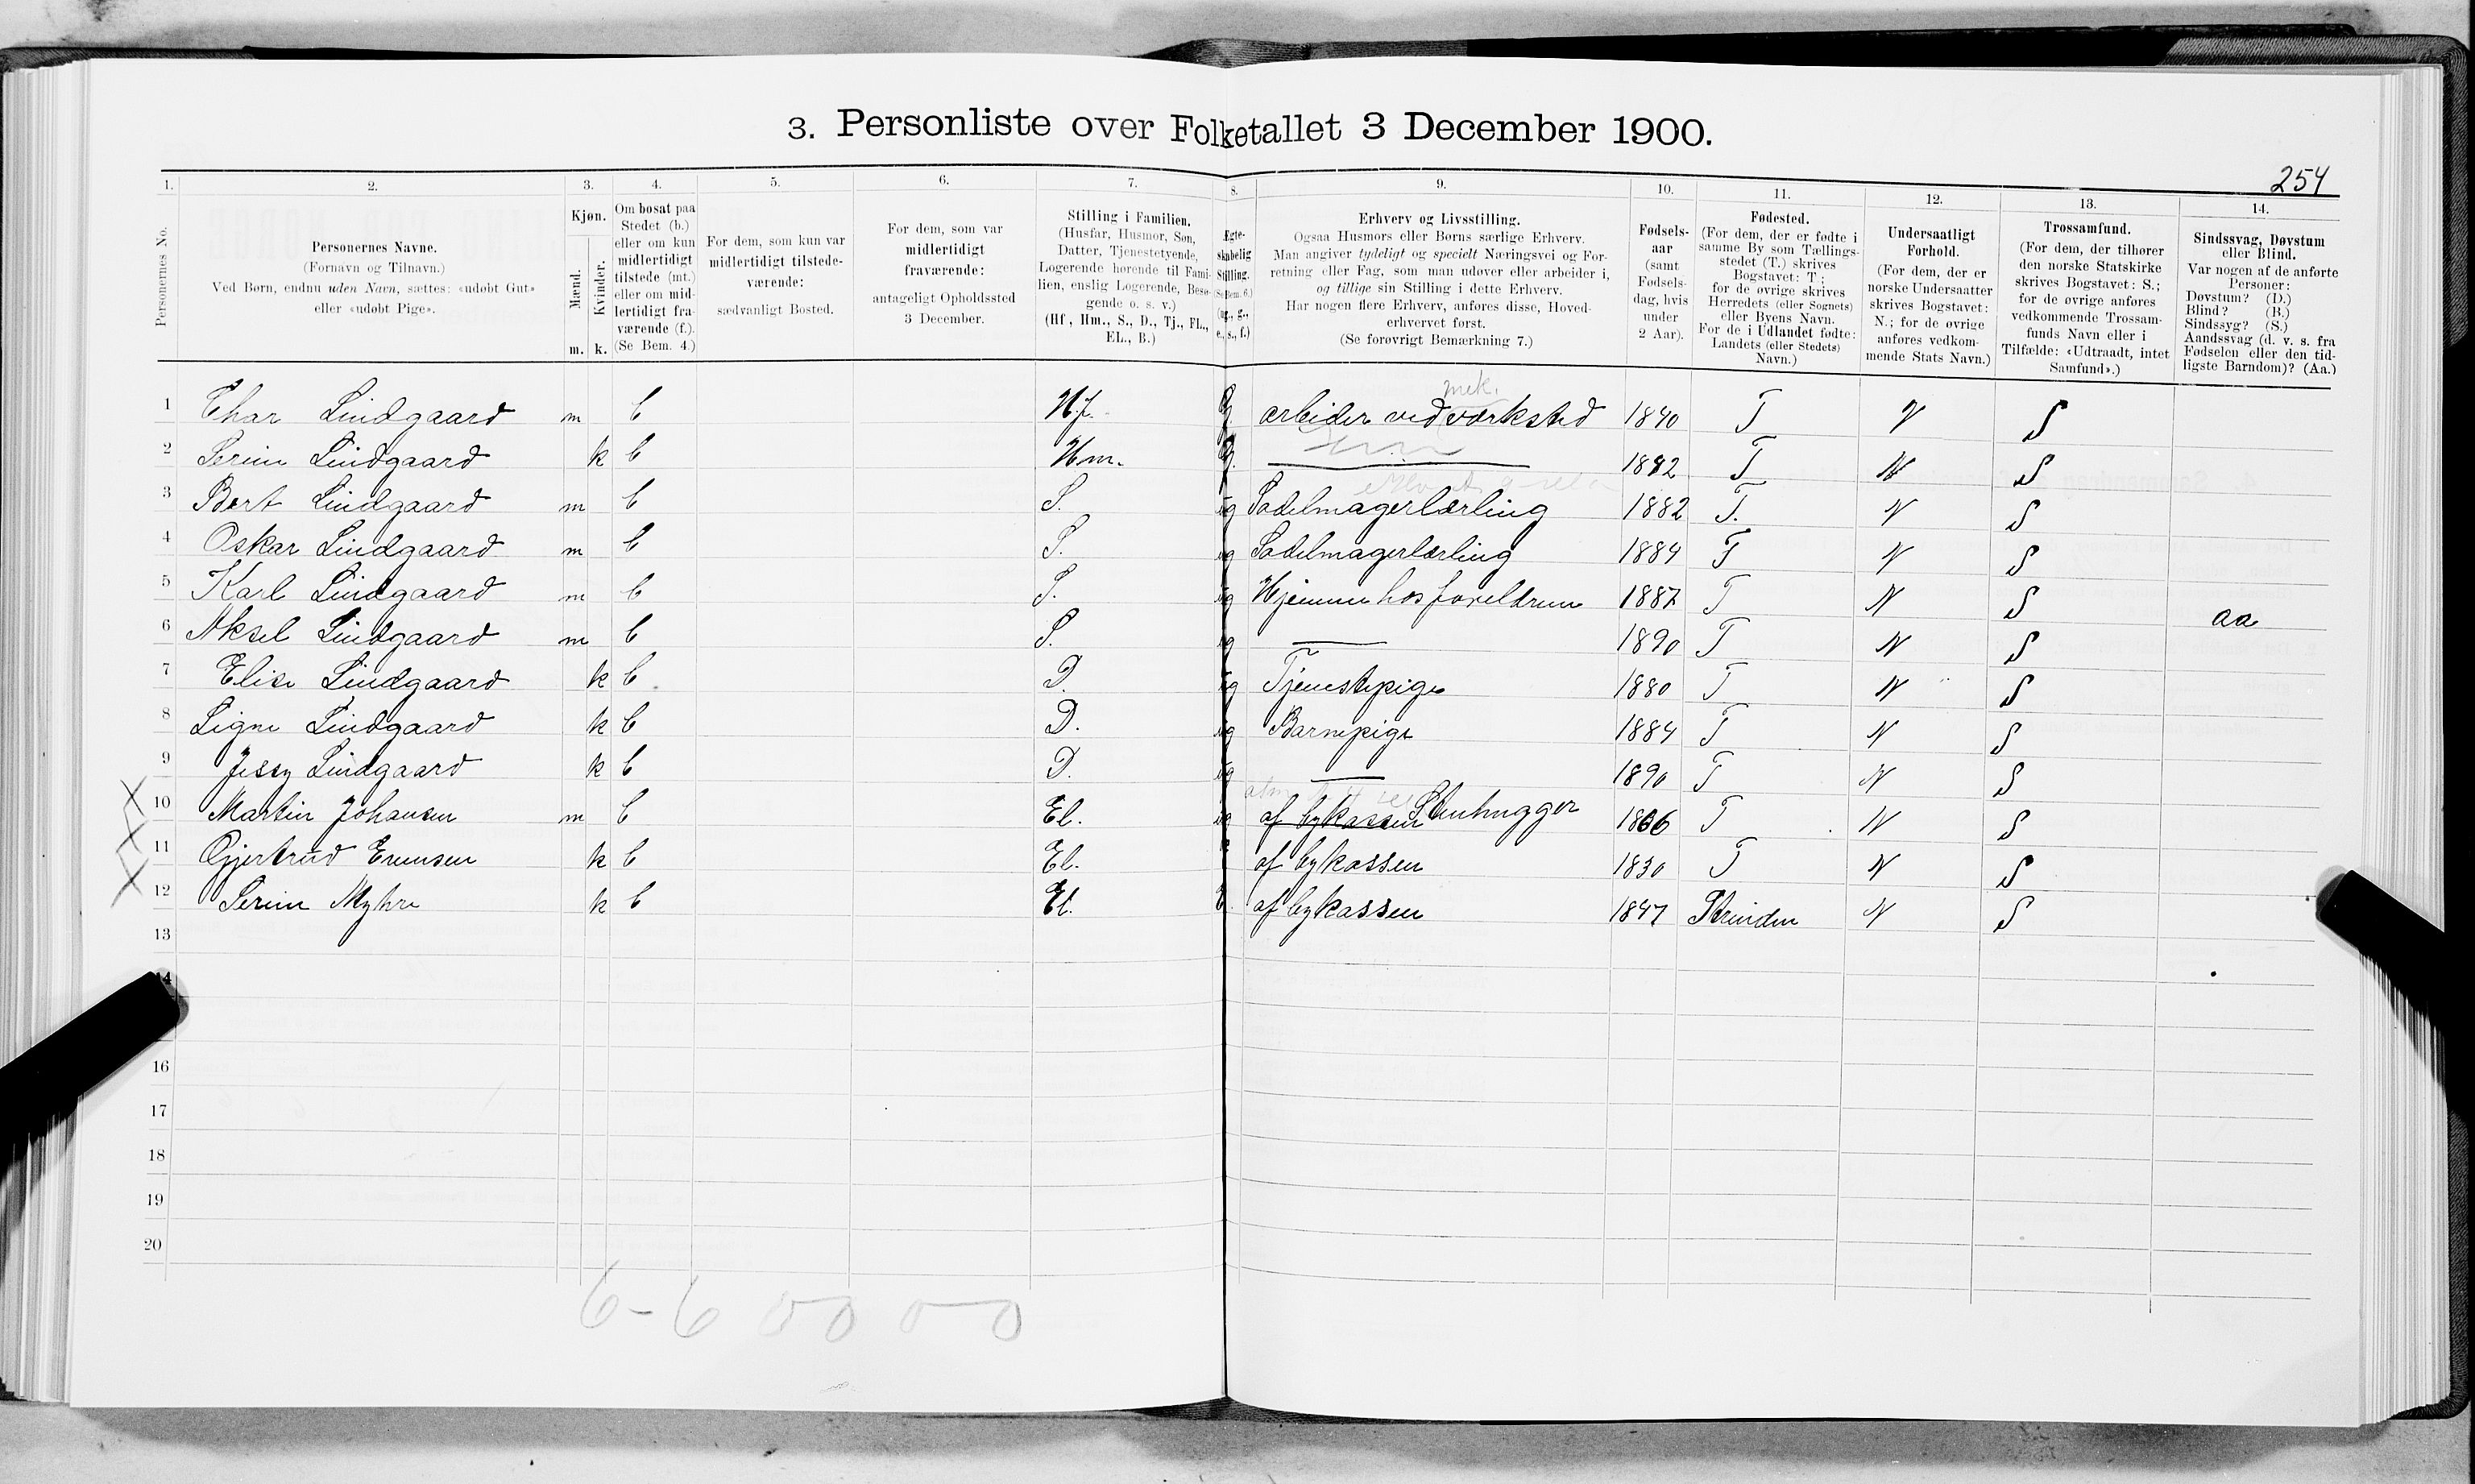 3. Personliste over Folketallet 3 December 1900.
254
1. 2. 3. 4. 5. 6. 7. 8. 9. 10. 11. 12. 13. 14.
Personernes No.
Personernes Navne.
(Fornavn og Tilnavn.)
Ved Børn, endnu uden Navn, sættes: «udøbt Gut»
eller «udøbt Pige».
Kjøn.
Mænd.
Kvinder.
m. k.
Om bosat paa
Stedet (b.)
eller om kun
midlertidigt
tilstede (mt.)
eller om mid-
lertidigt fra-
værende (f.).
(Se Bem. 4.)
For dem, som kun var
midlertidigt tilstede-
værende:
sædvanligt Bosted.
For dem, som var
midlertidigt
fraværende:
antageligt Opholdssted
3 December.
Stilling i Familien.
(Husfar, Husmor, Søn,
Datter, Tjenestetyende,
Logerende hørende til Fami-
lien, enslig Logerende, Besø-
gende o. s. v.)
(Hf, Hm., S., D., Tj., FL.,
EL., B.)
Ægte-
skabelig
Stilling.
(Se Bem. 6.)
(ug., g.,
e., s., f.)
Erhverv og Livsstilling.
Ogsaa Husmors eller Børns særlige Erhverv.
Man angiver tydeligt og specielt Næringsvei og For-
retning eller Fag, som man udøver eller arbeider i,
og tillige sin Stilling i dette Erhverv.
Har nogen flere Erhverv, anføres disse, Hoved-
erhvervet først.
(Se forøvrigt Bemærkning 7.)
Fødsels-
aar
(samt
Fødsels-
dag, hvis
under
2 Aar).
Fødested.
(For dem, der er fødte i
samme By som Tællings-
stedet (T.) skrives
Bogstavet: T.;
for de øvrige skrives
Herredets (eller Sognets)
eller Byens Navn.
For de i Udlandet fødte:
Landets (eller Stedets)
Navn.)
Undersaatligt
Forhold.
(For dem, der er
norske Undersaatter
skrives Bogstavet:
N.; for de øvrige
anføres vedkom-
mende Stats Navn.)
Trossamfund.
(For dem, der tilhører
den norske Statskirke
skrives Bogstavet: S.;
for de øvrige anføres
vedkommende Trossam-
funds Navn eller i
Tilfælde: «Udtraadt, intet
Samfund».)
Sindssvag, Døvstum
eller Blind.
Var nogen af de anførte
Personer:
Døvstum? (D.)
Blind? (B.)
Sindssyg? (S.)
Aandssvag (d. v. s. fra
Fødselen eller den tid-
ligste Barndom)? (Aa.)
mek.
1 Lindgaard m b Hf. g. arbeider ved værksted 1840 T N S
2 Serine Lindgaard k b Hm. g. T N S
3 Bert Lindgaard m b S. ug Sadelmagerlærling 1882 T. N S
4 Oskar Lindgaard m b S. ug Sadelmagerlærling 1884 T N S
5 Karl Lindgaard m b S. ug Hjemme hos foreldrene 1887 T N S aa
6 Aksel Lindgaard m b S. ug 1890 T N S
7 Elise Lindgaard k b D. ug Tjenestepige 1880 T N S
8 Signe Lindgaard k b D. ug Barnepige 1884 T N S
9 Jessy Lindgaard k b D. ug 1890 T N S
10 Martin Johansen m b El. ug af bykassen Stenhugger 1866 T N S
11 Gjertrud Evensen k b El. af bykassen 1830 T N S
12 Serine Myhre k b El. af bykassen 1847 Strinden N S
13
14
16
17
18
19
20
6-6 00 0-0